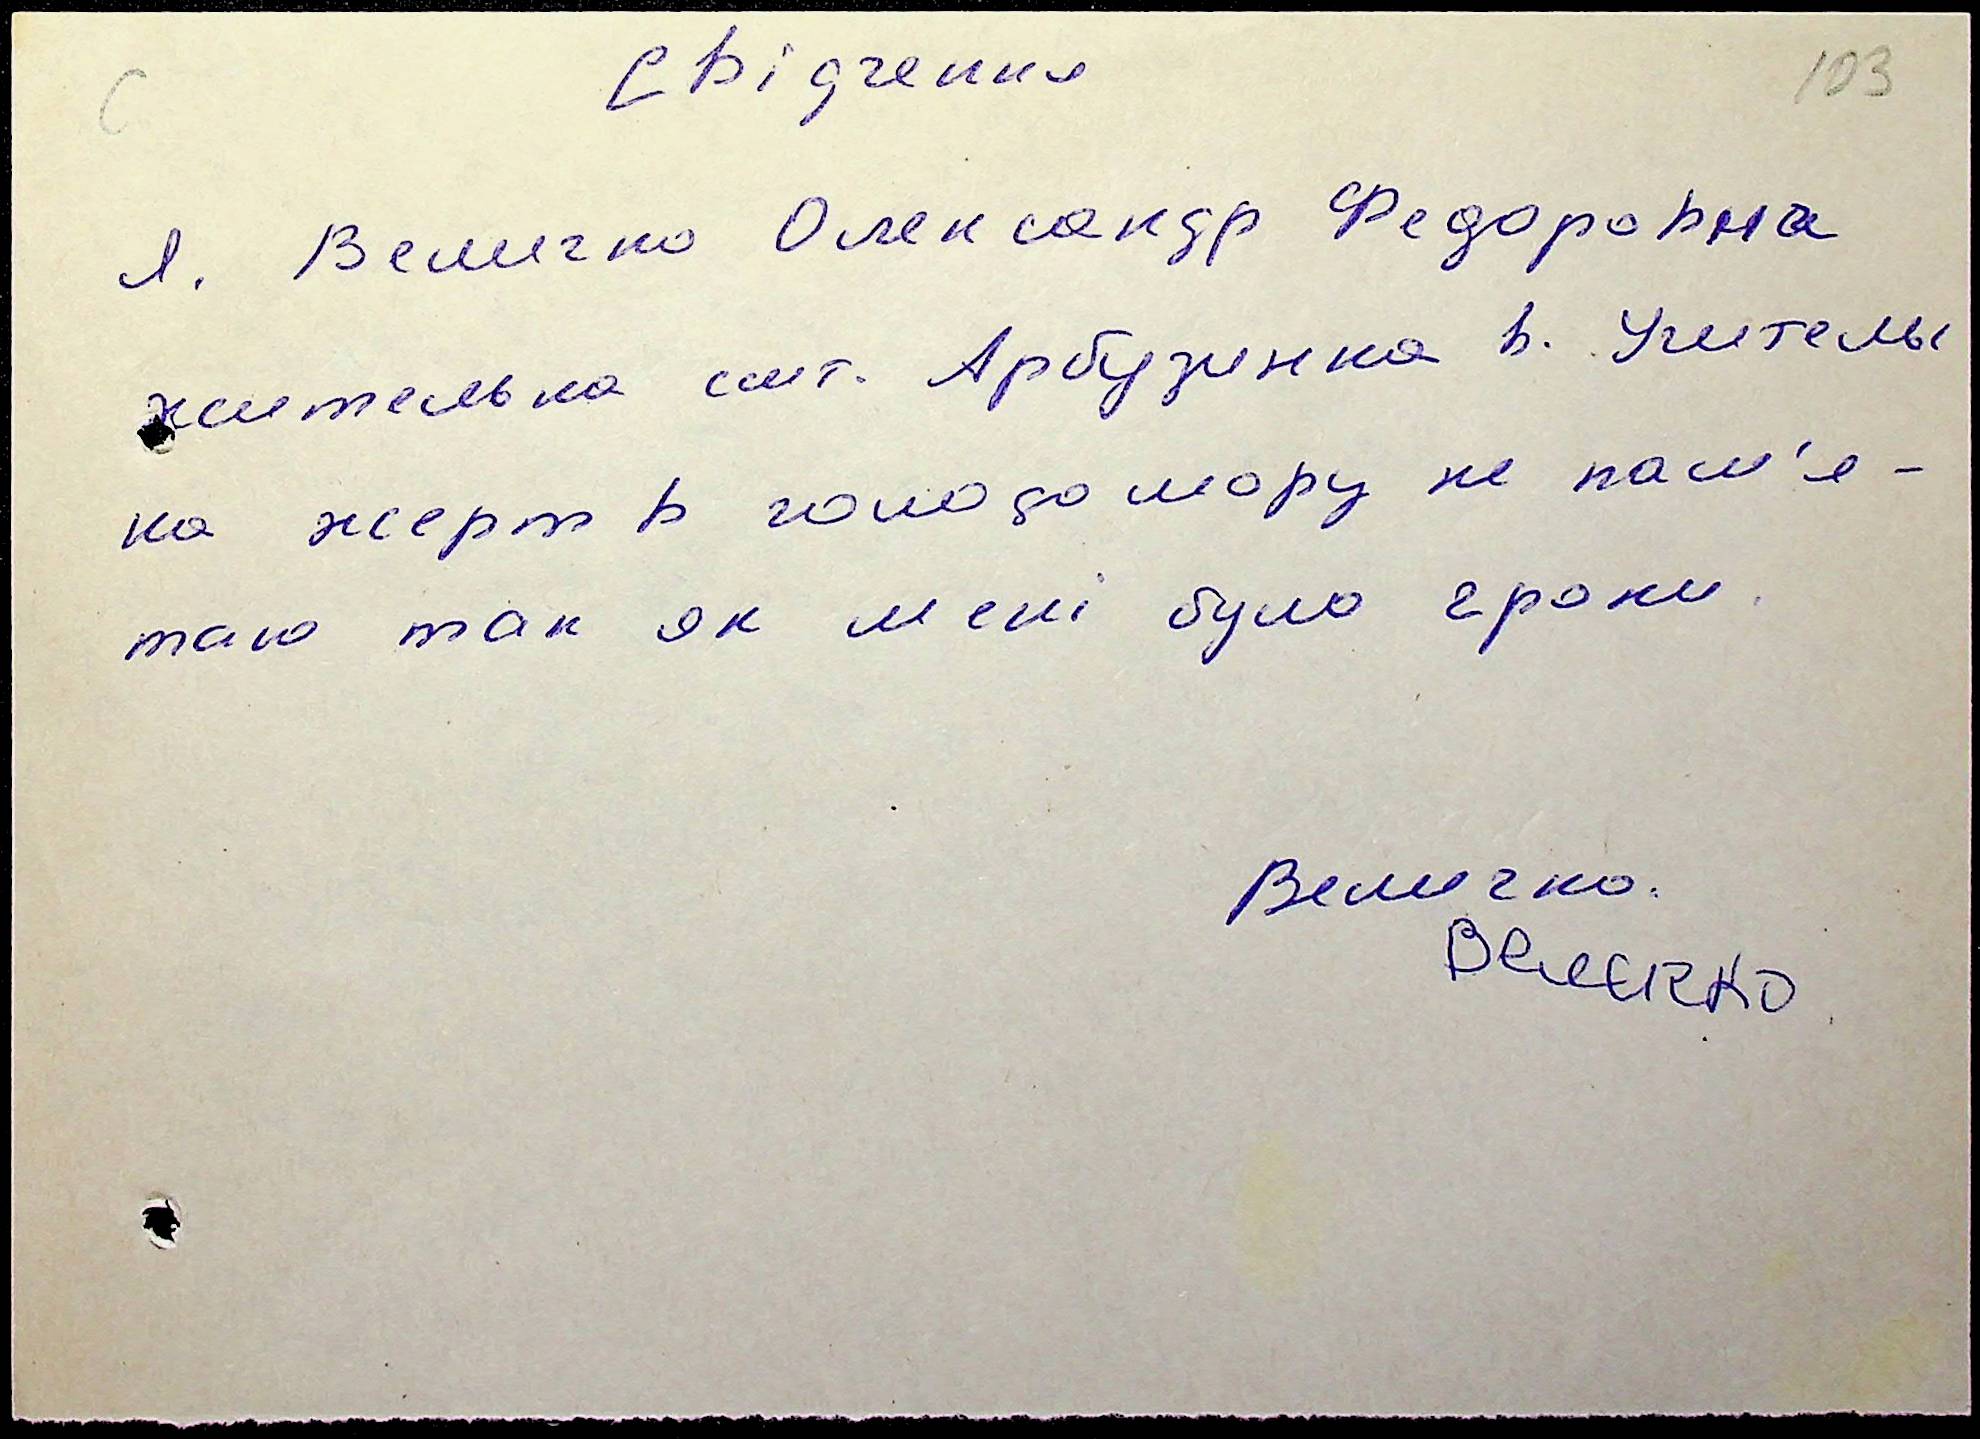 С
103
Свідчення
Я. Величко Олександр Федоровна
жителька смт. Арбузинка в. Учительсь
ка жертв голодомору не пам'я-
таю так як мені було 2 роки.
Величко.